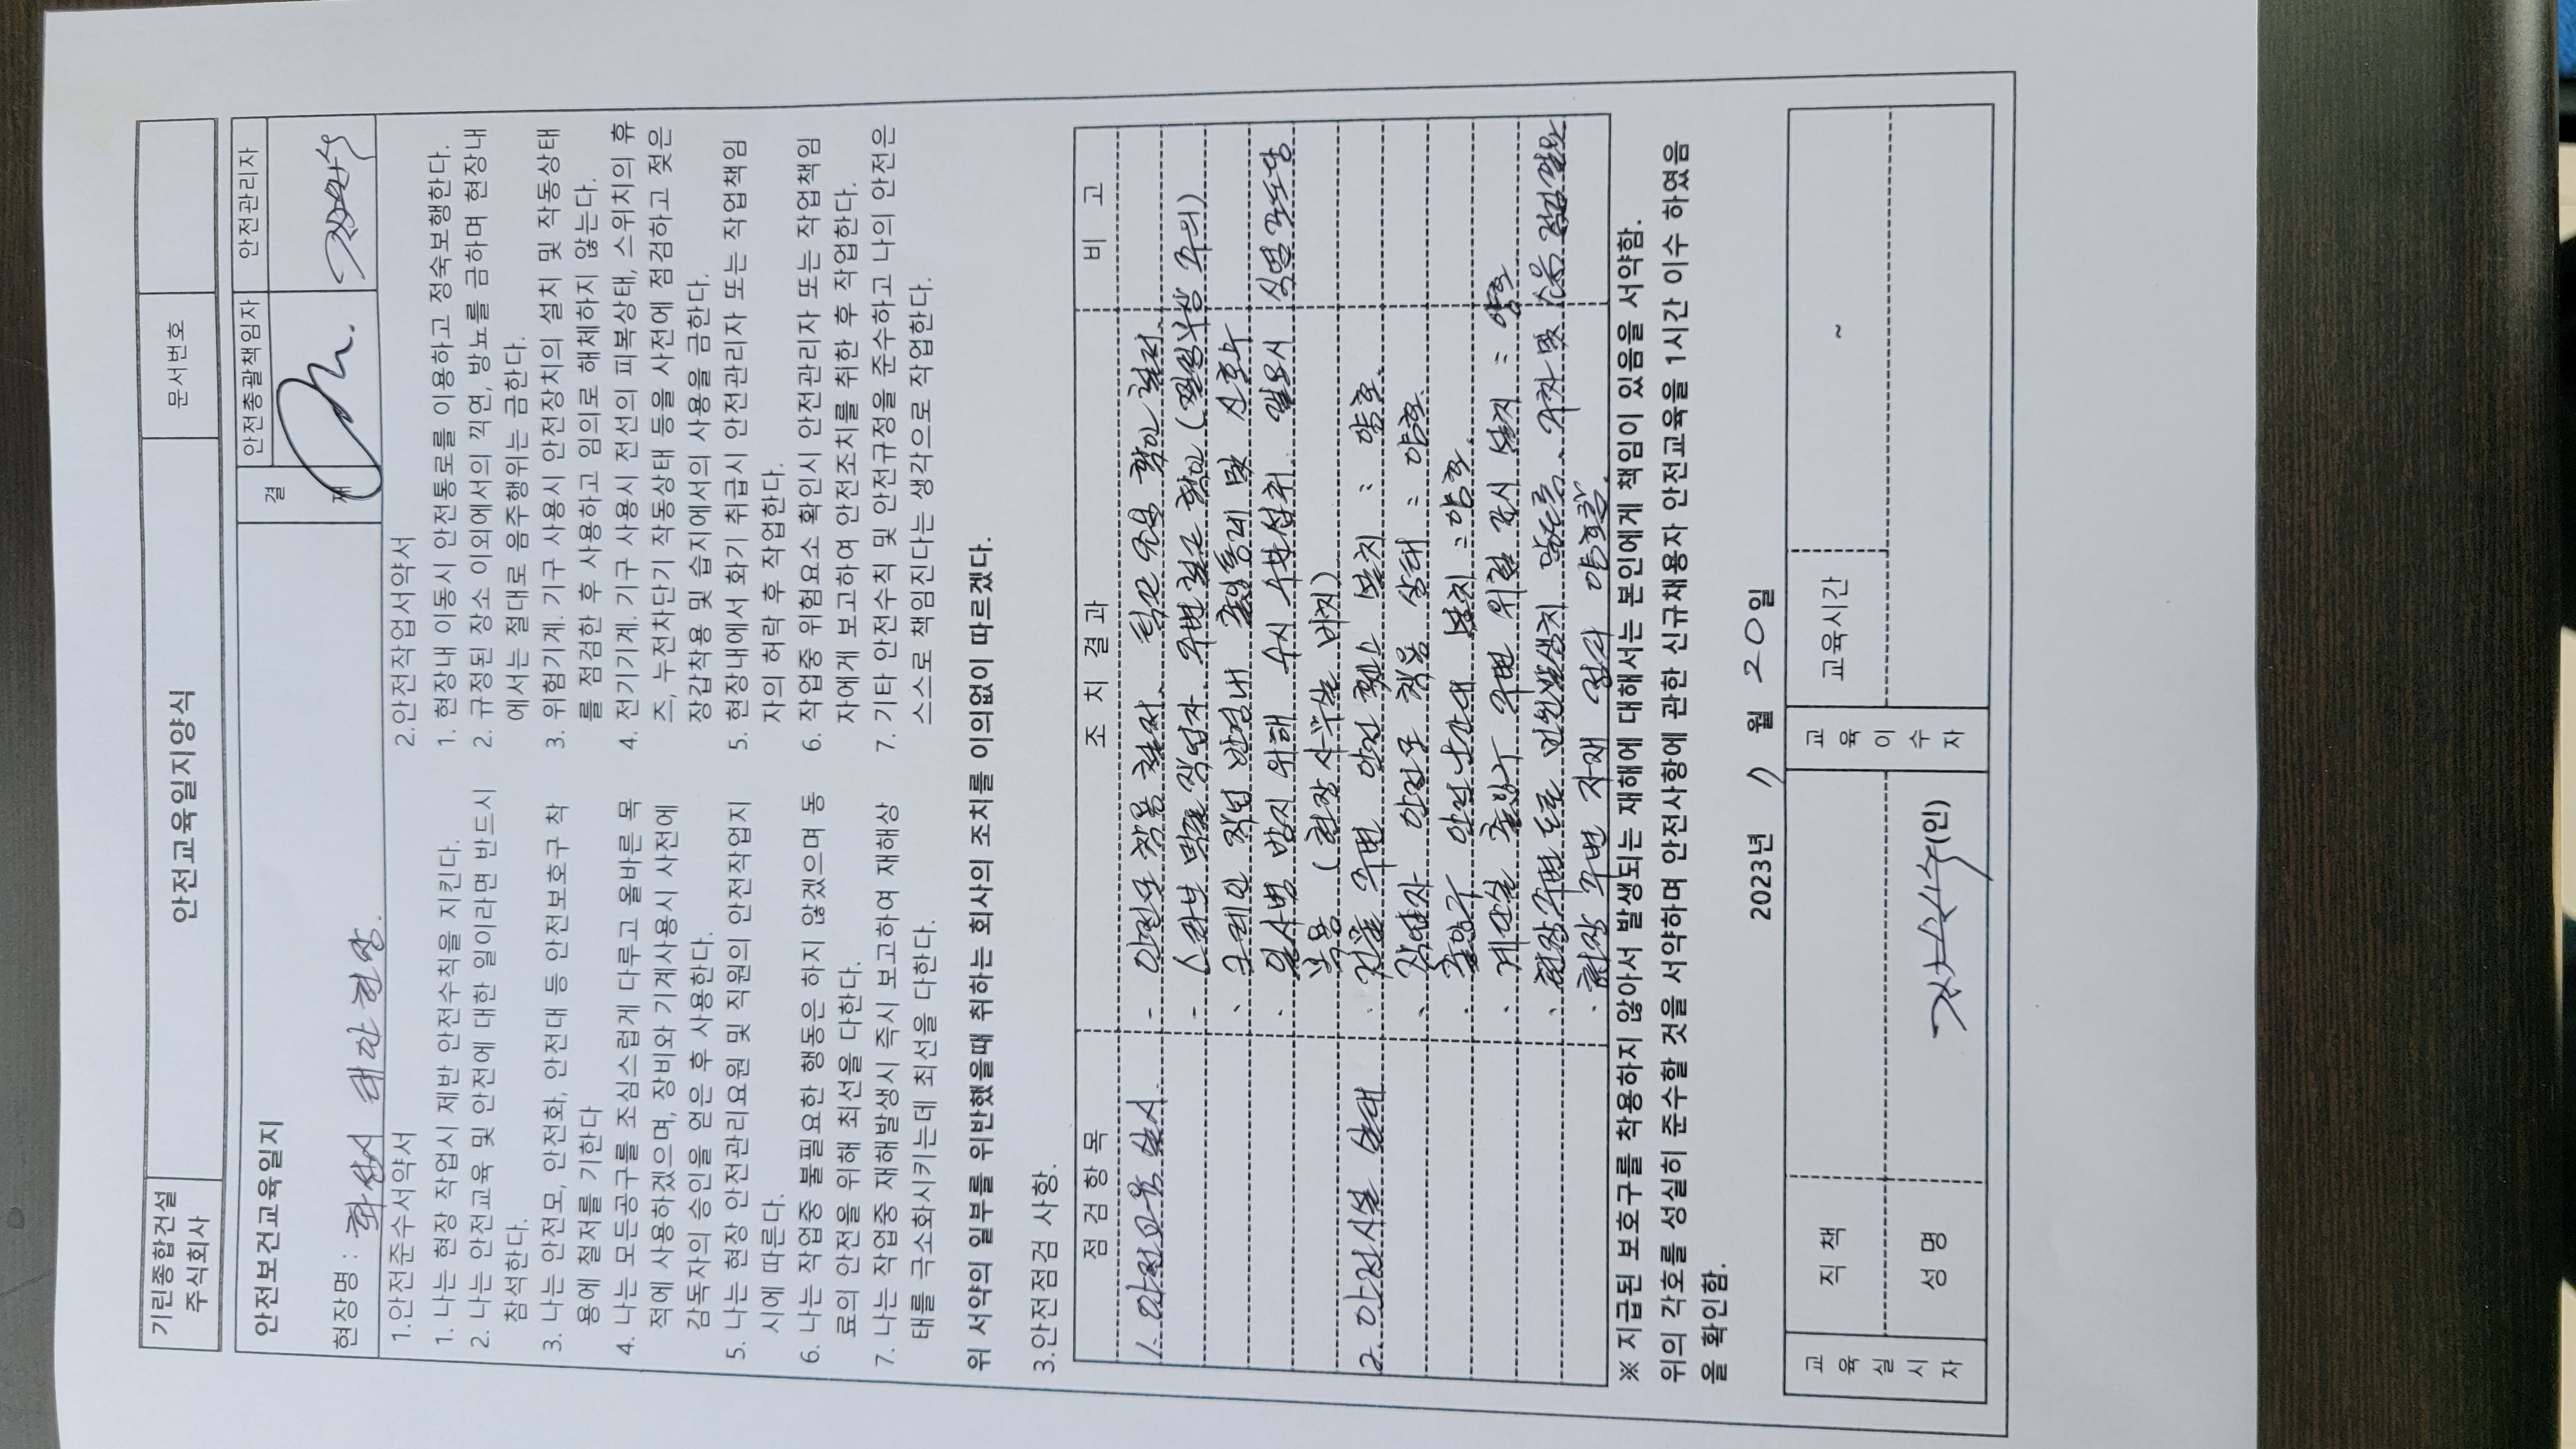 기린종합건설
주식회사
안전교육일지양식
문서번호
안전보건교육일지
결
재
안전총괄책임자
안전관리자
현장명 : 화성시 태안 현장.
1.안전준수서약서
1. 나는 현장 작업시 제반 안전수칙을 지킨다.
2. 나는 안전교육 및 안전에 대한 일이라면 반드시
참석한다.
3. 나는 안전모, 안전화, 안전대 등 안전보호구 착
용에 철저를 기한다
4. 나는 모든공구를 조심스럽게 다루고 올바른 목
적에 사용하겠으며, 장비와 기계사용시 사전에
감독자의 승인을 얻은 후 사용한다.
5. 나는 현장 안전관리요원 및 직원의 안전작업지
시에 따른다.
6. 나는 작업중 불필요한 행동은 하지 않겠으며 동
료의 안전을 위해 최선을 다한다.
7. 나는 작업중 재해발생시 즉시 보고하여 재해상
태를 극소화시키는데 최선을 다한다.
2.안전작업서약서
1. 현장내 이동시 안전통로를 이용하고 정숙보행한다.
2. 규정된 장소 이외에서의 끽연, 방뇨를 금하며 현장내
에서는 절대로 음주행위는 금한다.
3. 위험기계. 기구 사용시 안전장치의 설치 및 작동상태
를 점검한 후 사용하고 임의로 해체하지 않는다.
4. 전기기계. 기구 사용시 전선의 피복상태, 스위치의 휴
즈, 누전차단기 작동상태 등을 사전에 점검하고 젖은
장갑착용 및 습지에서의 사용을 금한다.
5. 현장내에서 화기 취급시 안전관리자 또는 작업책임
자의 허락 후 작업한다.
6. 작업중 위험요소 확인시 안전관리자 또는 작업책임
자에게 보고하여 안전조치를 취한 후 작업한다.
7. 기타 안전수칙 및 안전규정을 준수하고 나의 안전은
스스로 책임진다는 생각으로 작업한다.
위 서약의 일부를 위반했을때 취하는 회사의 조치를 이의없이 따르겠다.
3.안전점검 사항.
점 검 항 목
조 치 결 과
비 고
1. 안전교육 실시. - 안전모 착용 철저. 턱끈 조임 확인 철저.
- 스라브 작업자. 주변 철근 확인 (찔림부상 주의)
· 크레인 작업 반경내 출입통제 및 신호수
· 일사병 방지 위해 수시 수분섭취. 필요시 식염포도당
복용 (현장사무실 비치)
2. 안전시설 상태 · 건물 주변 안전 휀스 설치 : 양호.
· 작업자 안전모 착용 상태 : 양호.
· 출입구 안전난간대 설치 : 양호.
· 계단실 출입구 주변 위험 표시 설치 : 양호
· 현장주변 도로 민원발생치 않도록. 주차 및 소음 점검 필요
· 현장 주변 자재 정리 양호함.
※ 지급된 보호구를 착용하지 않아서 발생되는 재해에 대해서는 본인에게 책임이 있음을 서약함.
위의 각호를 성실히 준수할 것을 서약하며 안전사항에 관한 신규채용자 안전교육을 1시간 이수 하였음
을 확인함.
2023년 7 월 20일
교육실시자
직 책
성 명
(인)
교육이수자
교육시간
~